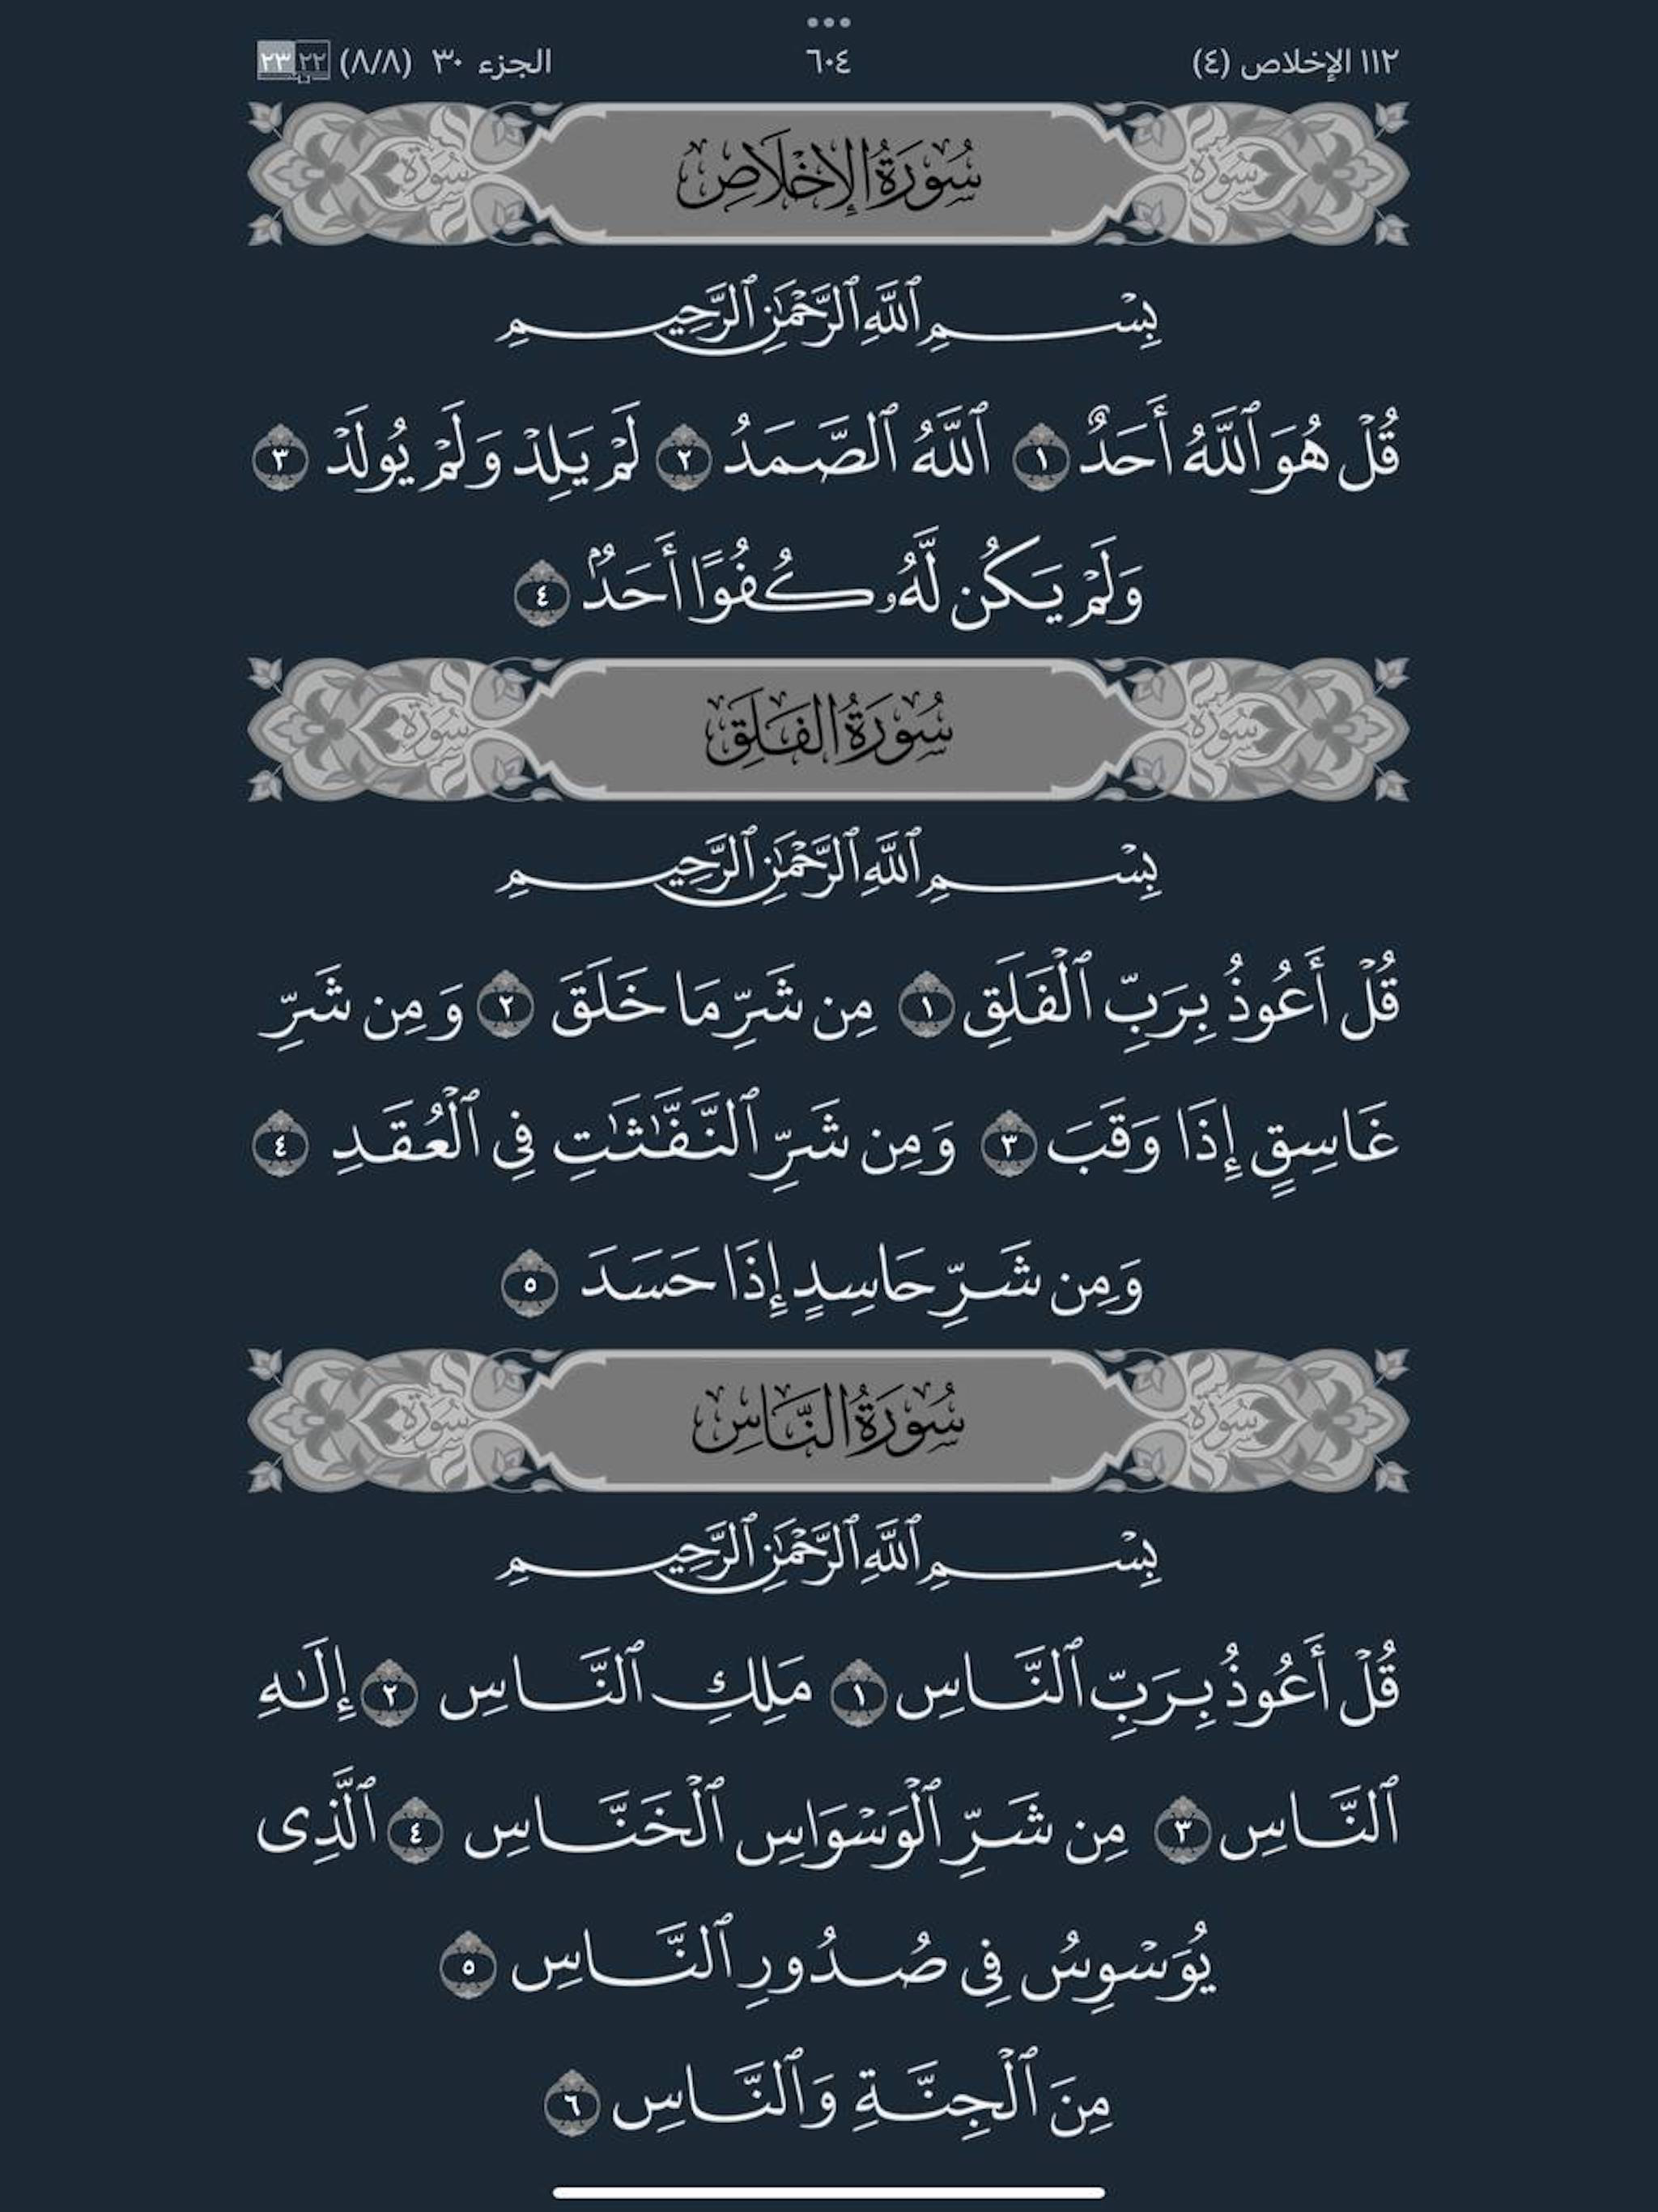 ١١٢ الإخلاص (٤) ٦٠٤ الجزء ٣٠ (٨/٨) ٢٢ ٢٣
سُورَةُ الإِخْلَاصِ
بِسْمِ ٱللَّهِ ٱلرَّحْمَٰنِ ٱلرَّحِيمِ
قُلْ هُوَ ٱللَّهُ أَحَدٌ ١ ٱللَّهُ ٱلصَّمَدُ ٢ لَمْ يَلِدْ وَلَمْ يُولَدْ ٣
وَلَمْ يَكُن لَّهُۥ كُفُوًا أَحَدٌۢ ٤
سُورَةُ الفَلَقِ
بِسْمِ ٱللَّهِ ٱلرَّحْمَٰنِ ٱلرَّحِيمِ
قُلْ أَعُوذُ بِرَبِّ ٱلْفَلَقِ ١ مِن شَرِّ مَا خَلَقَ ٢ وَمِن شَرِّ
غَاسِقٍ إِذَا وَقَبَ ٣ وَمِن شَرِّ ٱلنَّفَّٰثَٰتِ فِى ٱلْعُقَدِ ٤
وَمِن شَرِّ حَاسِدٍ إِذَا حَسَدَ ٥
سُورَةُ النَّاسِ
بِسْمِ ٱللَّهِ ٱلرَّحْمَٰنِ ٱلرَّحِيمِ
قُلْ أَعُوذُ بِرَبِّ ٱلنَّاسِ ١ مَلِكِ ٱلنَّاسِ ٢ إِلَٰهِ
ٱلنَّاسِ ٣ مِن شَرِّ ٱلْوَسْوَاسِ ٱلْخَنَّاسِ ٤ ٱلَّذِى
يُوَسْوِسُ فِى صُدُورِ ٱلنَّاسِ ٥
مِنَ ٱلْجِنَّةِ وَٱلنَّاسِ ٦